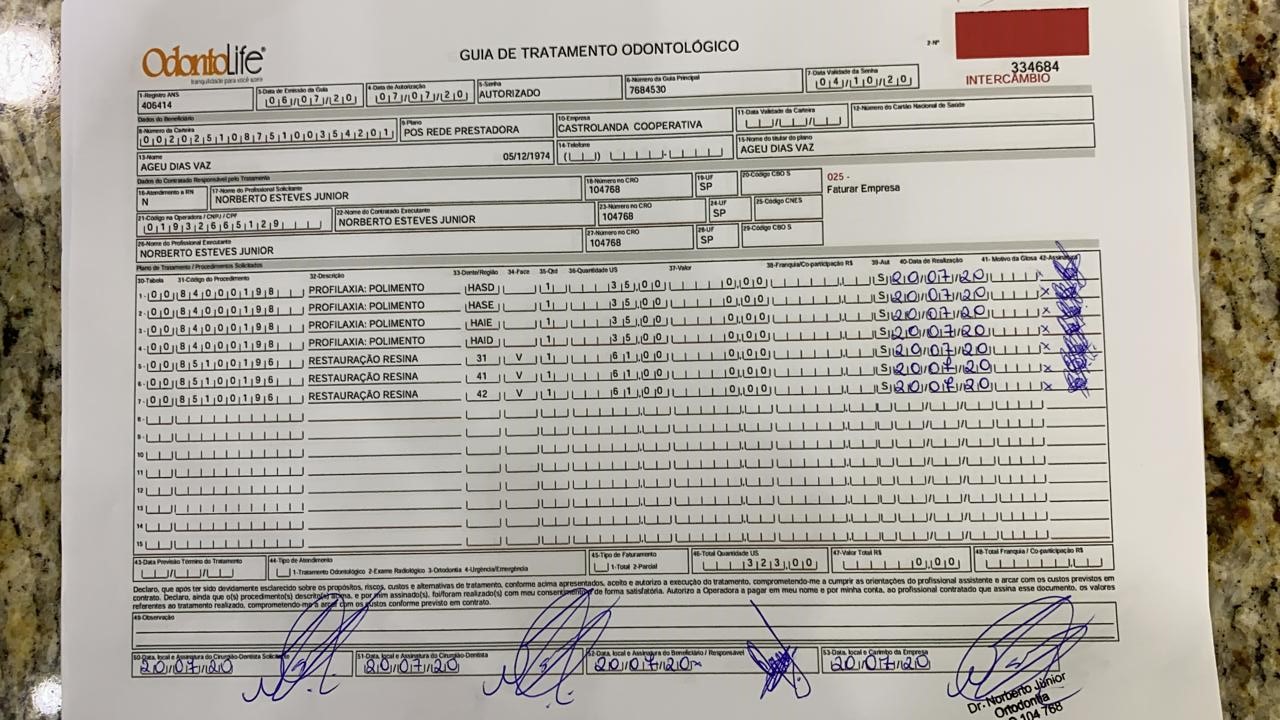 OdontoLife®
tranquilidade para você sorrir
GUIA DE TRATAMENTO ODONTOLÓGICO
2-Nº
334684
INTERCÂMBIO
1-Registro ANS
406414
3-Data de Emissão da Guia
06/07/20
4-Data de Autorização
07/07/20
5-Senha
AUTORIZADO
6-Número da Guia Principal
7684530
7-Data Validade da Senha
04/10/20
Dados do Beneficiário
8-Número da Carteira
00202510875100354201
9-Plano
POS REDE PRESTADORA
10-Empresa
CASTROLANDA COOPERATIVA
11-Data Validade da Carteira
12-Número do Cartão Nacional de Saúde
13-Nome
AGEU DIAS VAZ 05/12/1974
14-Telefone
15-Nome do titular do plano
AGEU DIAS VAZ
Dados do Contratado Responsável pelo Tratamento
16-Atendimento a RN
N
17-Nome do Profissional Solicitante
NORBERTO ESTEVES JUNIOR
18-Número no CRO
104768
19-UF
SP
20-Código CBO S
025 -
Faturar Empresa
21-Código na Operadora / CNPJ / CPF
01932665129
22-Nome do Contratado Executante
NORBERTO ESTEVES JUNIOR
23-Número no CRO
104768
24-UF
SP
25-Código CNES
26-Nome do Profissional Executante
NORBERTO ESTEVES JUNIOR
27-Número no CRO
104768
28-UF
SP
29-Código CBO S
Plano de Tratamento / Procedimentos Solicitados
30-Tabela 31-Código do Procedimento 32-Descrição 33-Dente/Região 34-Face 35-Qtd 36-Quantidade US 37-Valor 38-Franquia/Co-participação R$ 39-Aut 40-Data de Realização 41- Motivo da Glosa 42-Assinatura
1- 00 84000198 PROFILAXIA: POLIMENTO HASD 1 35,00 0,00 S 20/07/20 x
2- 00 84000198 PROFILAXIA: POLIMENTO HASE 1 35,00 0,00 S 20/07/20 x
3- 00 84000198 PROFILAXIA: POLIMENTO HAIE 1 35,00 0,00 S 20/07/20 x
4- 00 84000198 PROFILAXIA: POLIMENTO HAID 1 35,00 0,00 S 20/07/20 x
5- 00 85100196 RESTAURAÇÃO RESINA 31 V 1 61,00 0,00 S 20/07/20 x
6- 00 85100196 RESTAURAÇÃO RESINA 41 V 1 61,00 0,00 S 20/07/20 x
7- 00 85100196 RESTAURAÇÃO RESINA 42 V 1 61,00 0,00 S 20/07/20 x
8-
9-
10-
11-
12-
13-
14-
15-
43-Data Previsão Término do Tratamento
44-Tipo de Atendimento
1-Tratamento Odontológico 2-Exame Radiológico 3-Ortodontia 4-Urgência/Emergência
45-Tipo de Faturamento
1-Total 2-Parcial
46-Total Quantidade US
323,00
47-Valor Total R$
0,00
48-Total Franquia / Co-participação R$
Declaro, que após ter sido devidamente esclarecido sobre os propósitos, riscos, custos e alternativas de tratamento, conforme acima apresentados, aceito e autorizo a execução do tratamento, comprometendo-me a cumprir as orientações do profissional assistente e arcar com os custos previstos em
contrato. Declaro, ainda que o(s) procedimento(s) descrito(s) acima, e por mim assinado(s), foi/foram realizado(s) com meu consentimento e de forma satisfatória. Autorizo a Operadora a pagar em meu nome e por minha conta, ao profissional contratado que assina esse documento, os valores
referentes ao tratamento realizado, comprometendo-me a arcar com os custos conforme previsto em contrato.
49-Observação
50-Data, local e Assinatura do Cirurgião-Dentista Solicitante
20/07/20
51-Data, local e Assinatura do Cirurgião-Dentista
20/07/20
52-Data, local e Assinatura do Beneficiário / Responsável
20/07/20 x
53-Data, local e Carimbo da Empresa
20/07/20
Dr. Norberto Júnior
Ortodontia
104 768